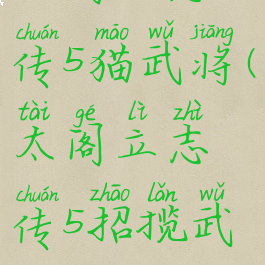 chuán māo wǔ jiāng
传5猫武将(
tài gé lì zhì
太阁立志
chuán zhāo lǎn wǔ
传5招揽武